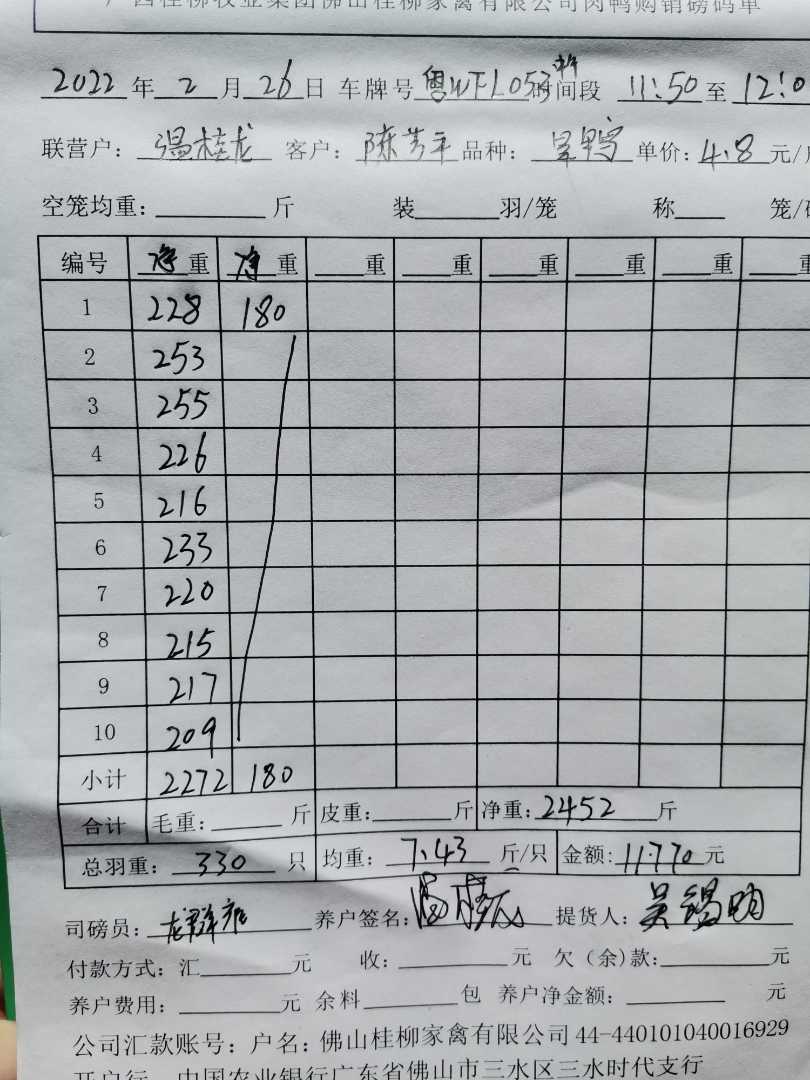 广西桂柳牧业集团佛山桂柳家禽有限公司肉鸭购销磅码单
2022年2月26日 车牌号粤WFL053 时间段 11:50至12:0
联营户：温桂龙 客户：陈芳平 品种： 单价：4.8元/
空笼均重：______斤 装______羽/笼 称____笼/
编号 净重 净重 ___重 ___重 ___重 ___重 ___重 重
1 228 180
2 253
3 255
4 226
5 216
6 233
7 220
8 215
9 217
10 209
小计 2272 180
合计 毛重：______斤 皮重：______斤 净重：2452斤
总羽重：330只 均重：7.43斤/只 金额：11770元
司磅员：龙群雄 养户签名： 提货人：吴锡明
付款方式：汇______元 收：______元 欠（余）款：______元
养户费用：______元 余料______包 养户净金额：______元
公司汇款账号：户名：佛山桂柳家禽有限公司 44-440101040016929
开户行 中国农业银行广东省佛山市三水区三水时代支行